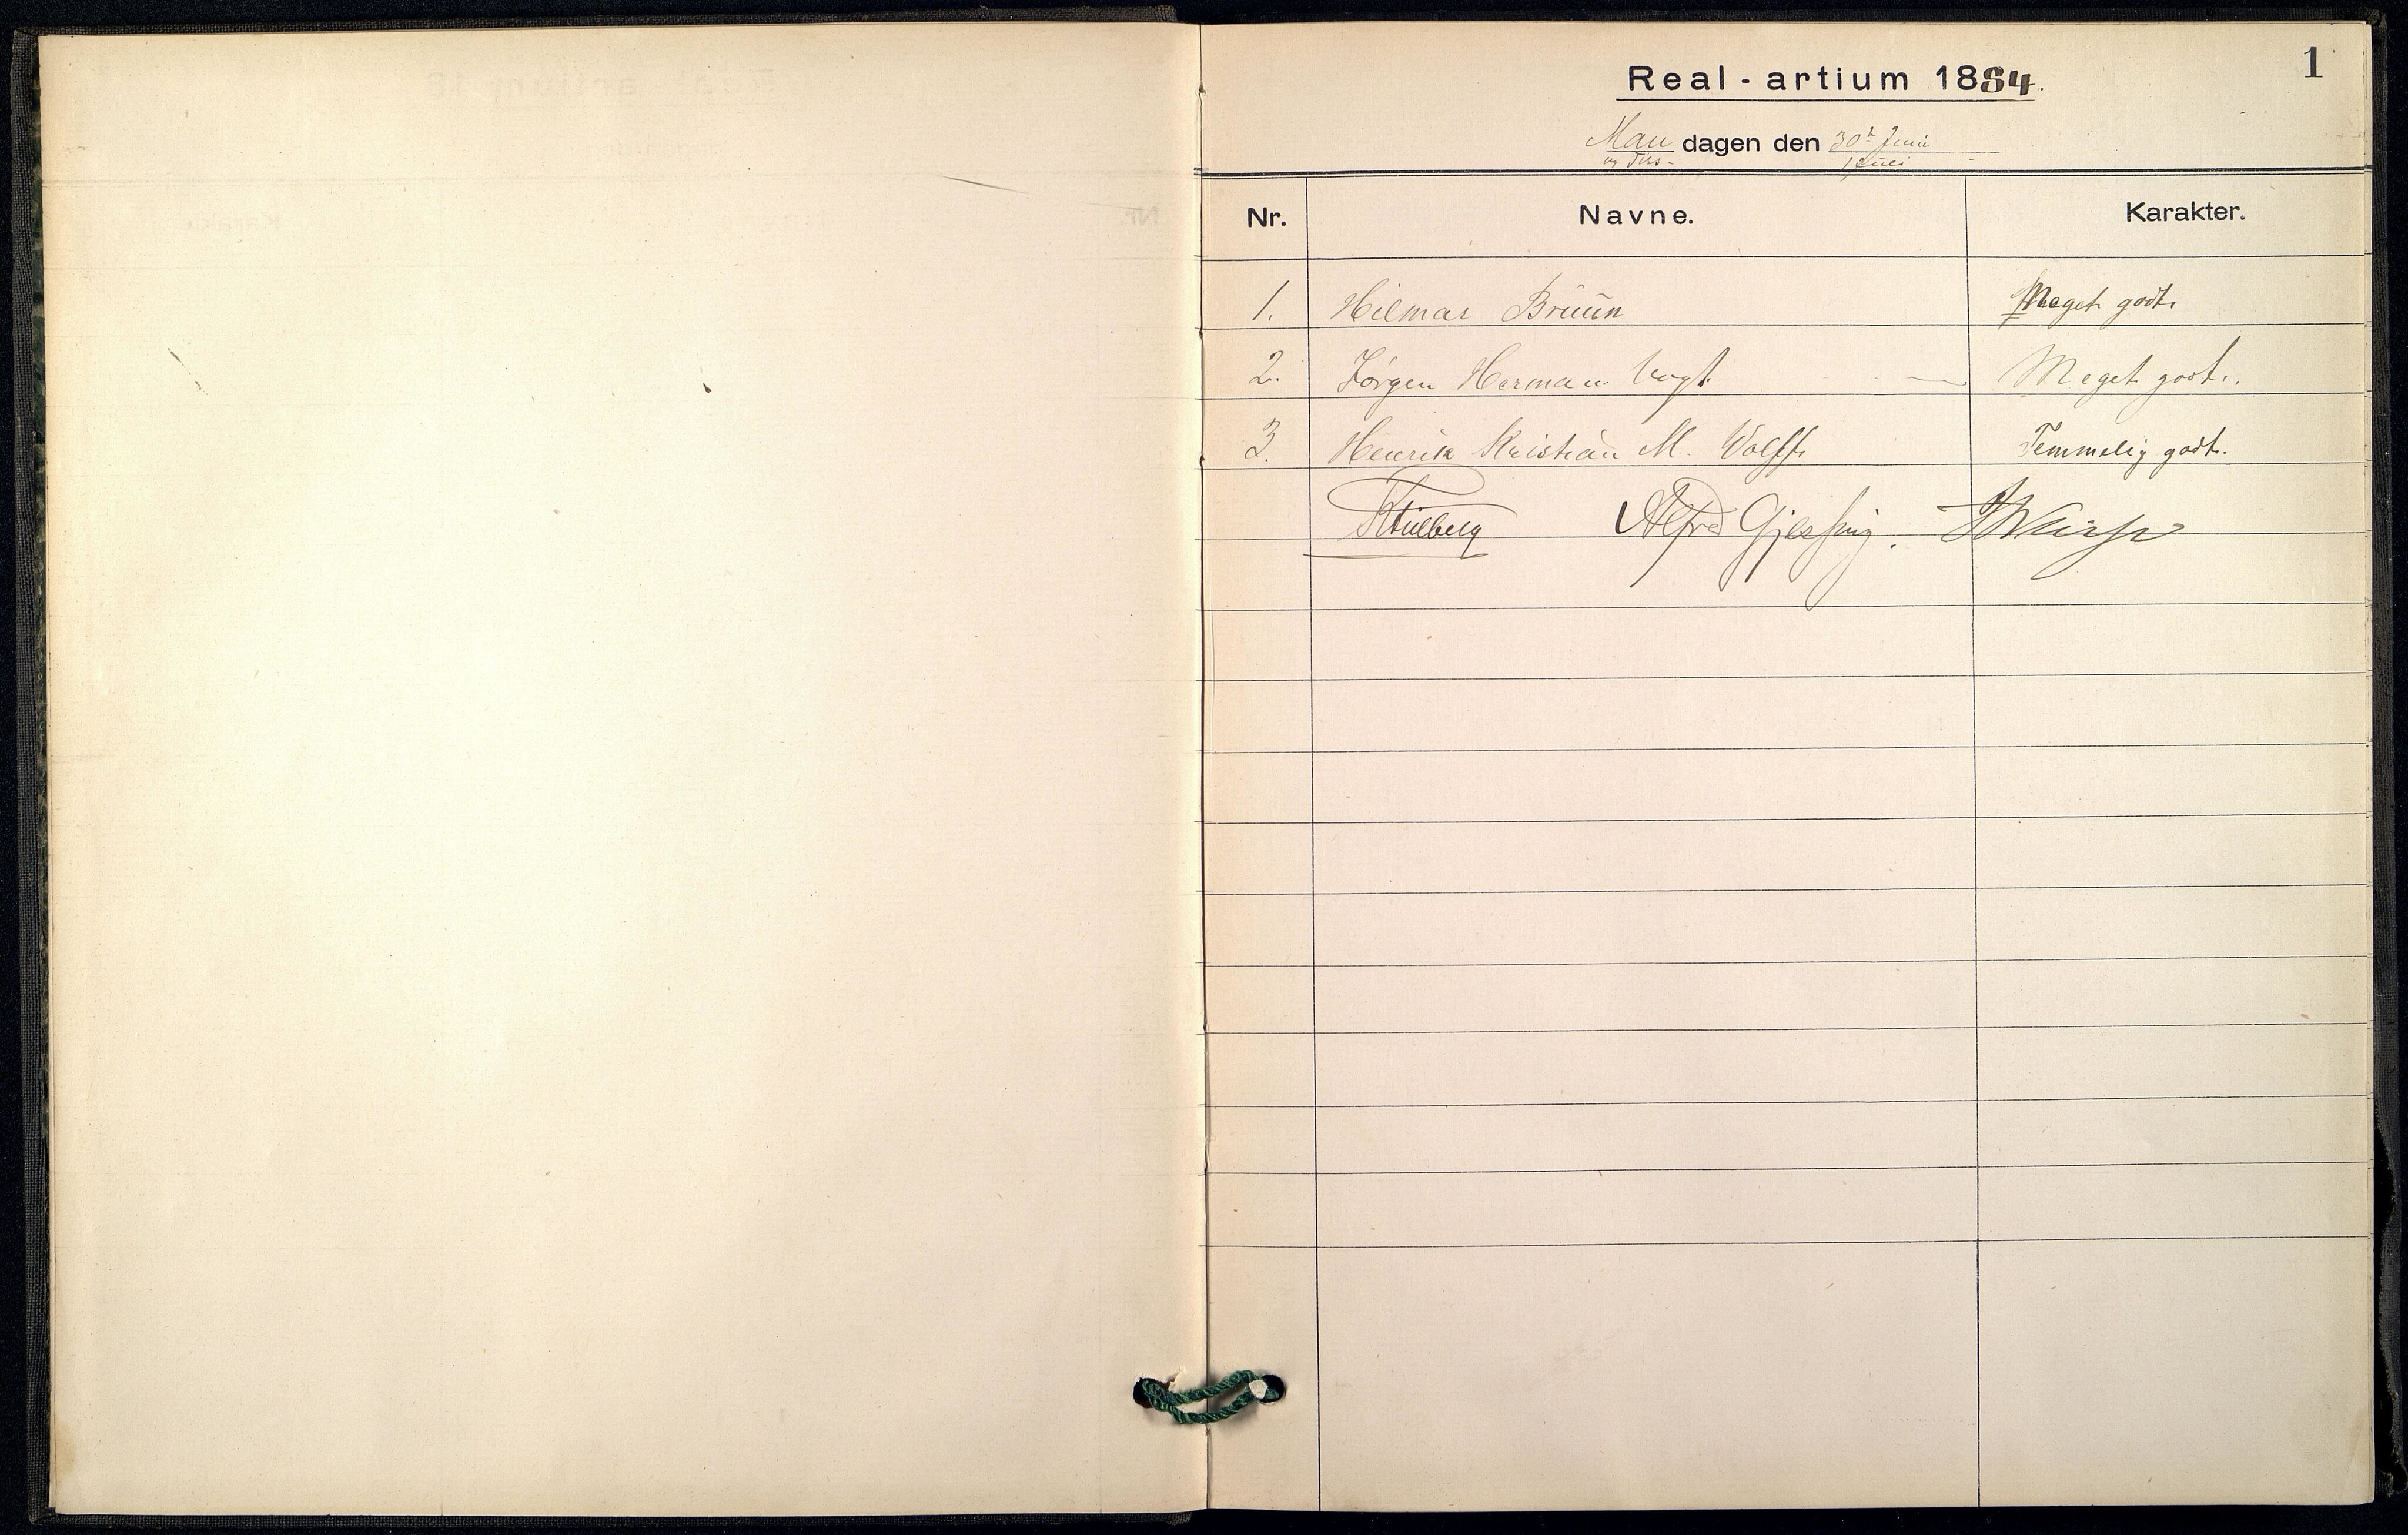 1
Real-artium 1884.
Mandagen den 30te Juni
og Tirs- 1 Juli
Nr. Navne. Karakter.
1. Hilmar Bruun Meget godt.
2. Jörgen Herman Vogt. Meget godt.
3. Henrik Kristian M. Wolff. Temmelig godt.
Alfred Gjessing.